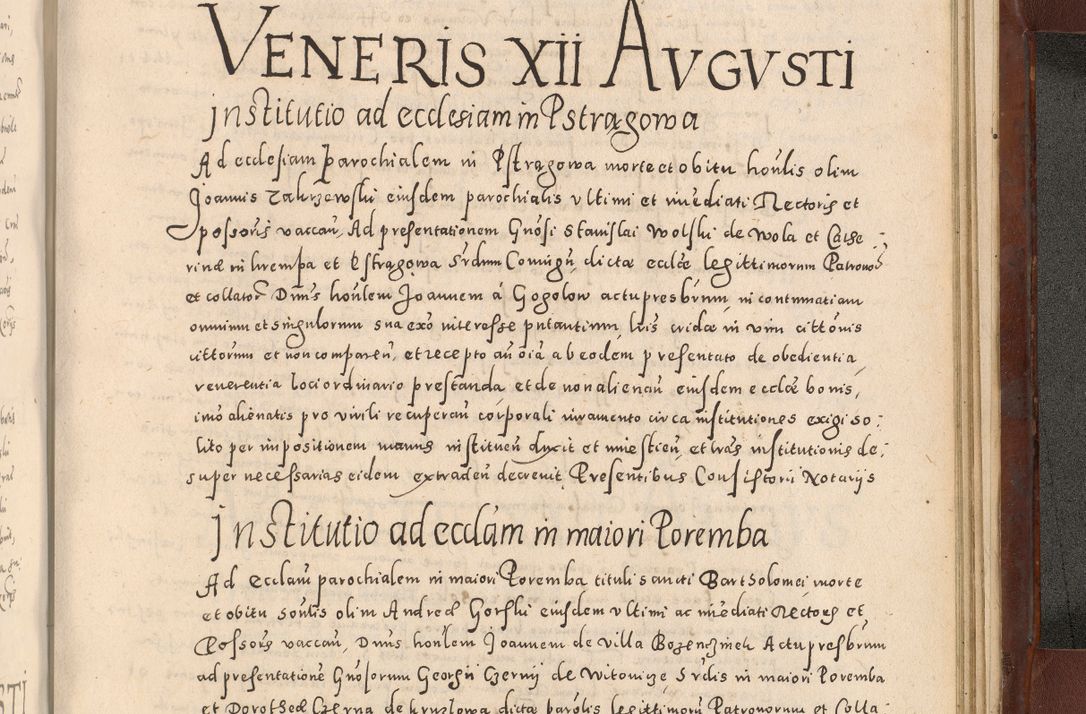 VENERIS XII AVGVSTI
Institutio ad ecclesiam in Pstragowa
Ad ecclesiam parochialem in Pstragowa morte et obitu honlis olim
Joannis Zakrzewski eiusdem parochialis vltimi et imediati Rectoris et
possoris vaccan, Ad presentationem Gnosi Stanislai Wolski de Wola et Cathe
rinae in et Pstragowa Srdum Coniugu, dictae eccliae legittimorum Patronor
et collator Dnus honlem Joannem à Gogolow actu presbrum, in contumatiam
omnium et singulorum sua exo interesse putantium, huis cridae in vim citt̃onis
cittorum et non comparen, et recepto an oia ab eodem presentato de obedientia
reverentia loci ordinario prestanda et de non alienan eiusdem eccliae bonis,
imo alienatis pro virili recuperan corporali iuramento circa institutiones exigi so
lito per impositionem manus instituen duxit et inuestien, et lras institutionis de
super necessarias eidem extraden decrevit, Presentibus Consistorii Notarijs
Institutio ad ecclam in maiori Poremba
Ad ecclam parochialem in maiori Poremba tituli sancti Bartholomei morte
et obitu honlis olim Andreae Gorski eiusdem vltimi ac imediati Rectoris et
Possoris vaccan, Dnus honlem Joannem de villa Actu presbrum
ad presentatione Gnosorum Georgii Czernij de Witowice Srdis in maiori Poremba
et Dorotheae Czerna de kruzlowa dictae parolis legittimoru Patronorum et Colla